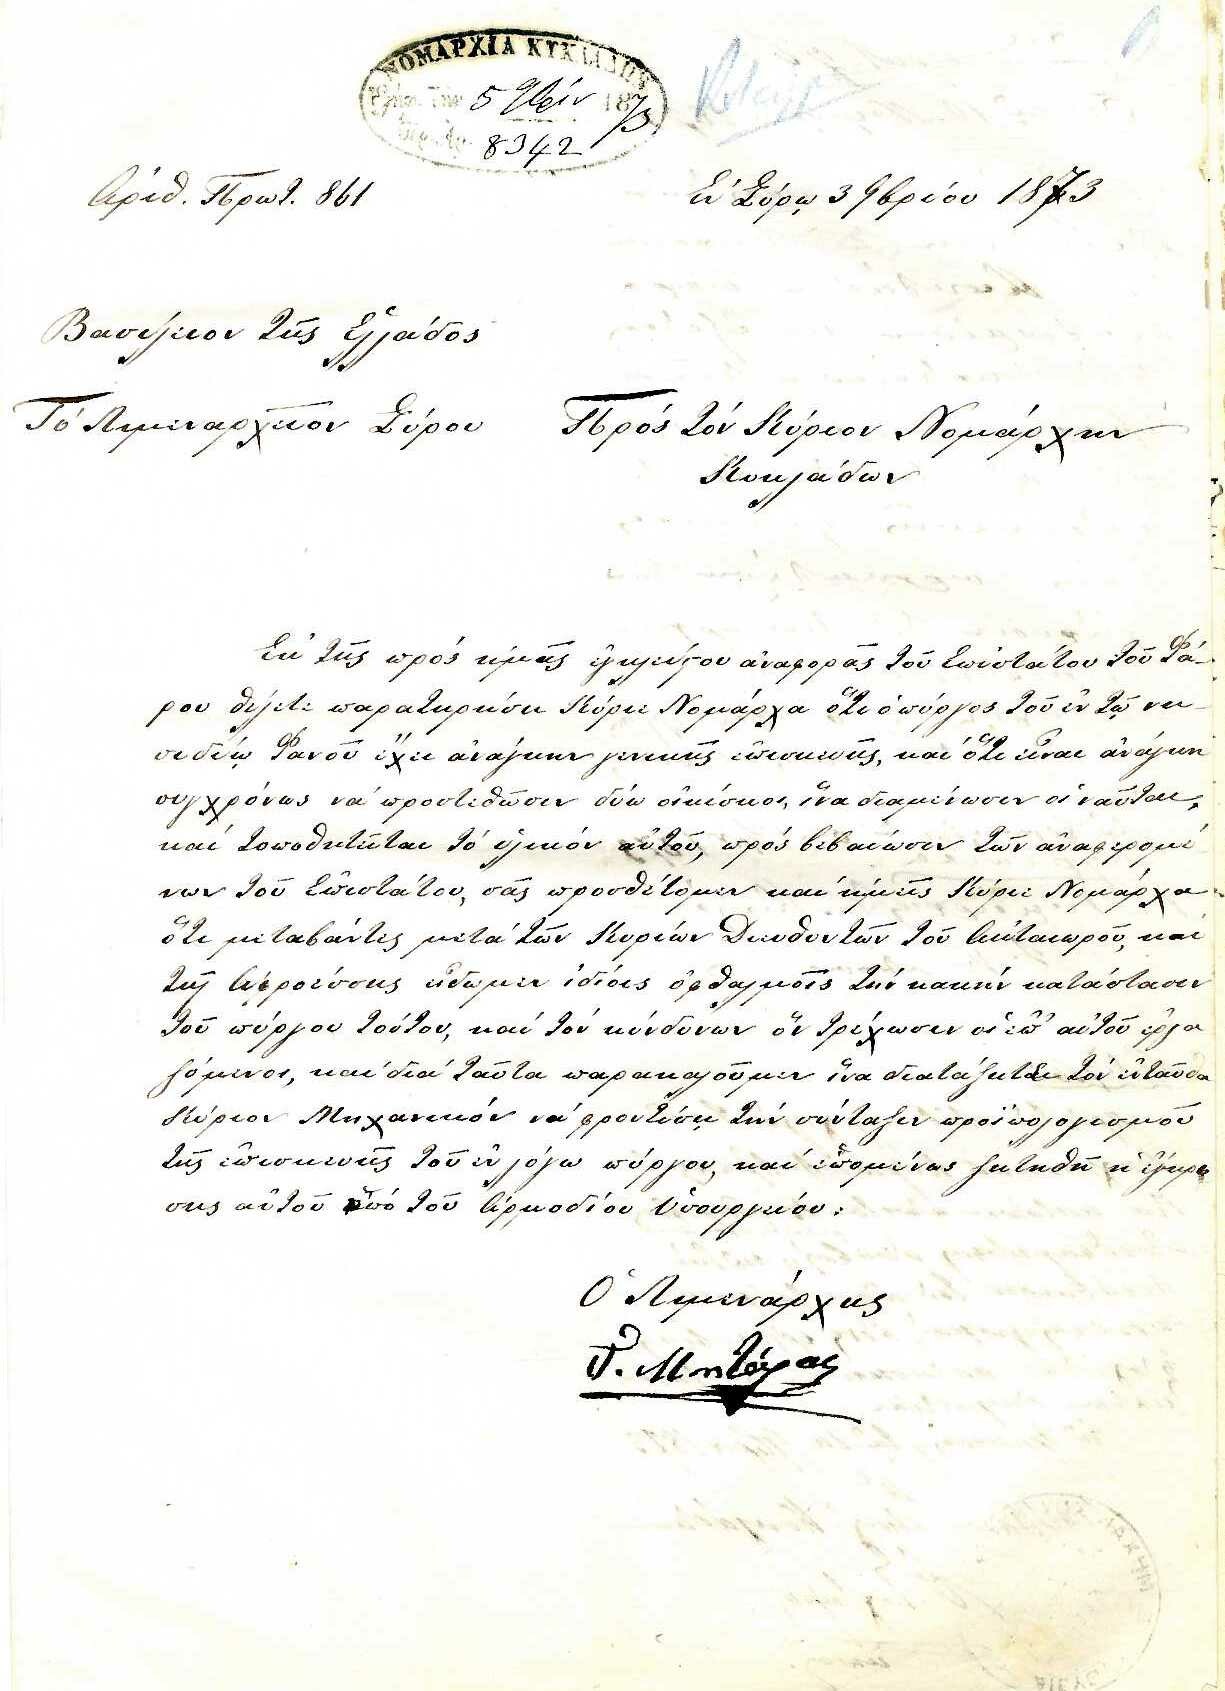 ΝΟΜΑΡΧΙΑ ΚΥΚΛΑΔΩΝ
5 9βρίου 1873
8342
Ἀριθ. Πρωτ. 861
Ἐν Σύρῳ 3 9βρίου 1873
Βασίλειον τῆς Ἑλλάδος
Τό Λιμεναρχεῖον Σύρου
Πρός τόν Κύριον Νομάρχην
Κυκλάδων
Ἐκ τῆς πρός ἡμᾶς ἐγκλείστου ἀναφορᾶς τοῦ Ἐπιστάτου τοῦ Φά-
ρου θέλετε παρατηρήσει Κύριε Νομάρχα ὅτι ὁ πύργος τοῦ ἐν τῷ νη-
σιδίῳ Φανοῦ ἔχει ἀνάγκην γενικῆς ἐπισκευῆς, καί ὅτι εἶναι ἀνάγκη
συγχρόνως νά προστεθῶσιν δύω οἰκίσκοι, ἵνα διαμένωσιν οἱ ναῦται,
καί τοποθητῆται τό ὑλικόν αὐτοῦ, πρός βεβαίωσιν τῶν ἀναφερομέ
νων τοῦ Ἐπιστάτου, σᾶς προσθέτομεν καί ἡμεῖς Κύριε Νομάρχα
ὅτι μεταβάντες μετά τῶν Κυρίων Διευθυντῶν τοῦ Ἀκταιωροῦ, καί
τῆς Ἀφροέσσης εἴδωμεν ἰδίοις ὀφθαλμοῖς τήν κακήν κατάστασιν
τοῦ πύργου τούτου, καί τόν κίνδυνων ὅν τρέχωσιν οἱ ἐπ' αὐτοῦ ἐργα
ζόμενοι, καί διά ταῦτα παρακαλοῦμεν ἵνα διατάξητε τόν ἐνταῦθα
Κύριον Μηχανικόν νά φροντίσῃ τήν σύνταξιν προϋπολογισμοῦ
τῆς ἐπισκευῆς τοῦ ἐν λόγω πύργου, καί ἑπομένως ζητηθῆ ἡ ἔγκρι
σις αὐτοῦ ἀπό τοῦ Ἁρμοδίου Ὑπουργείου.
Ὁ Λιμενάρχης